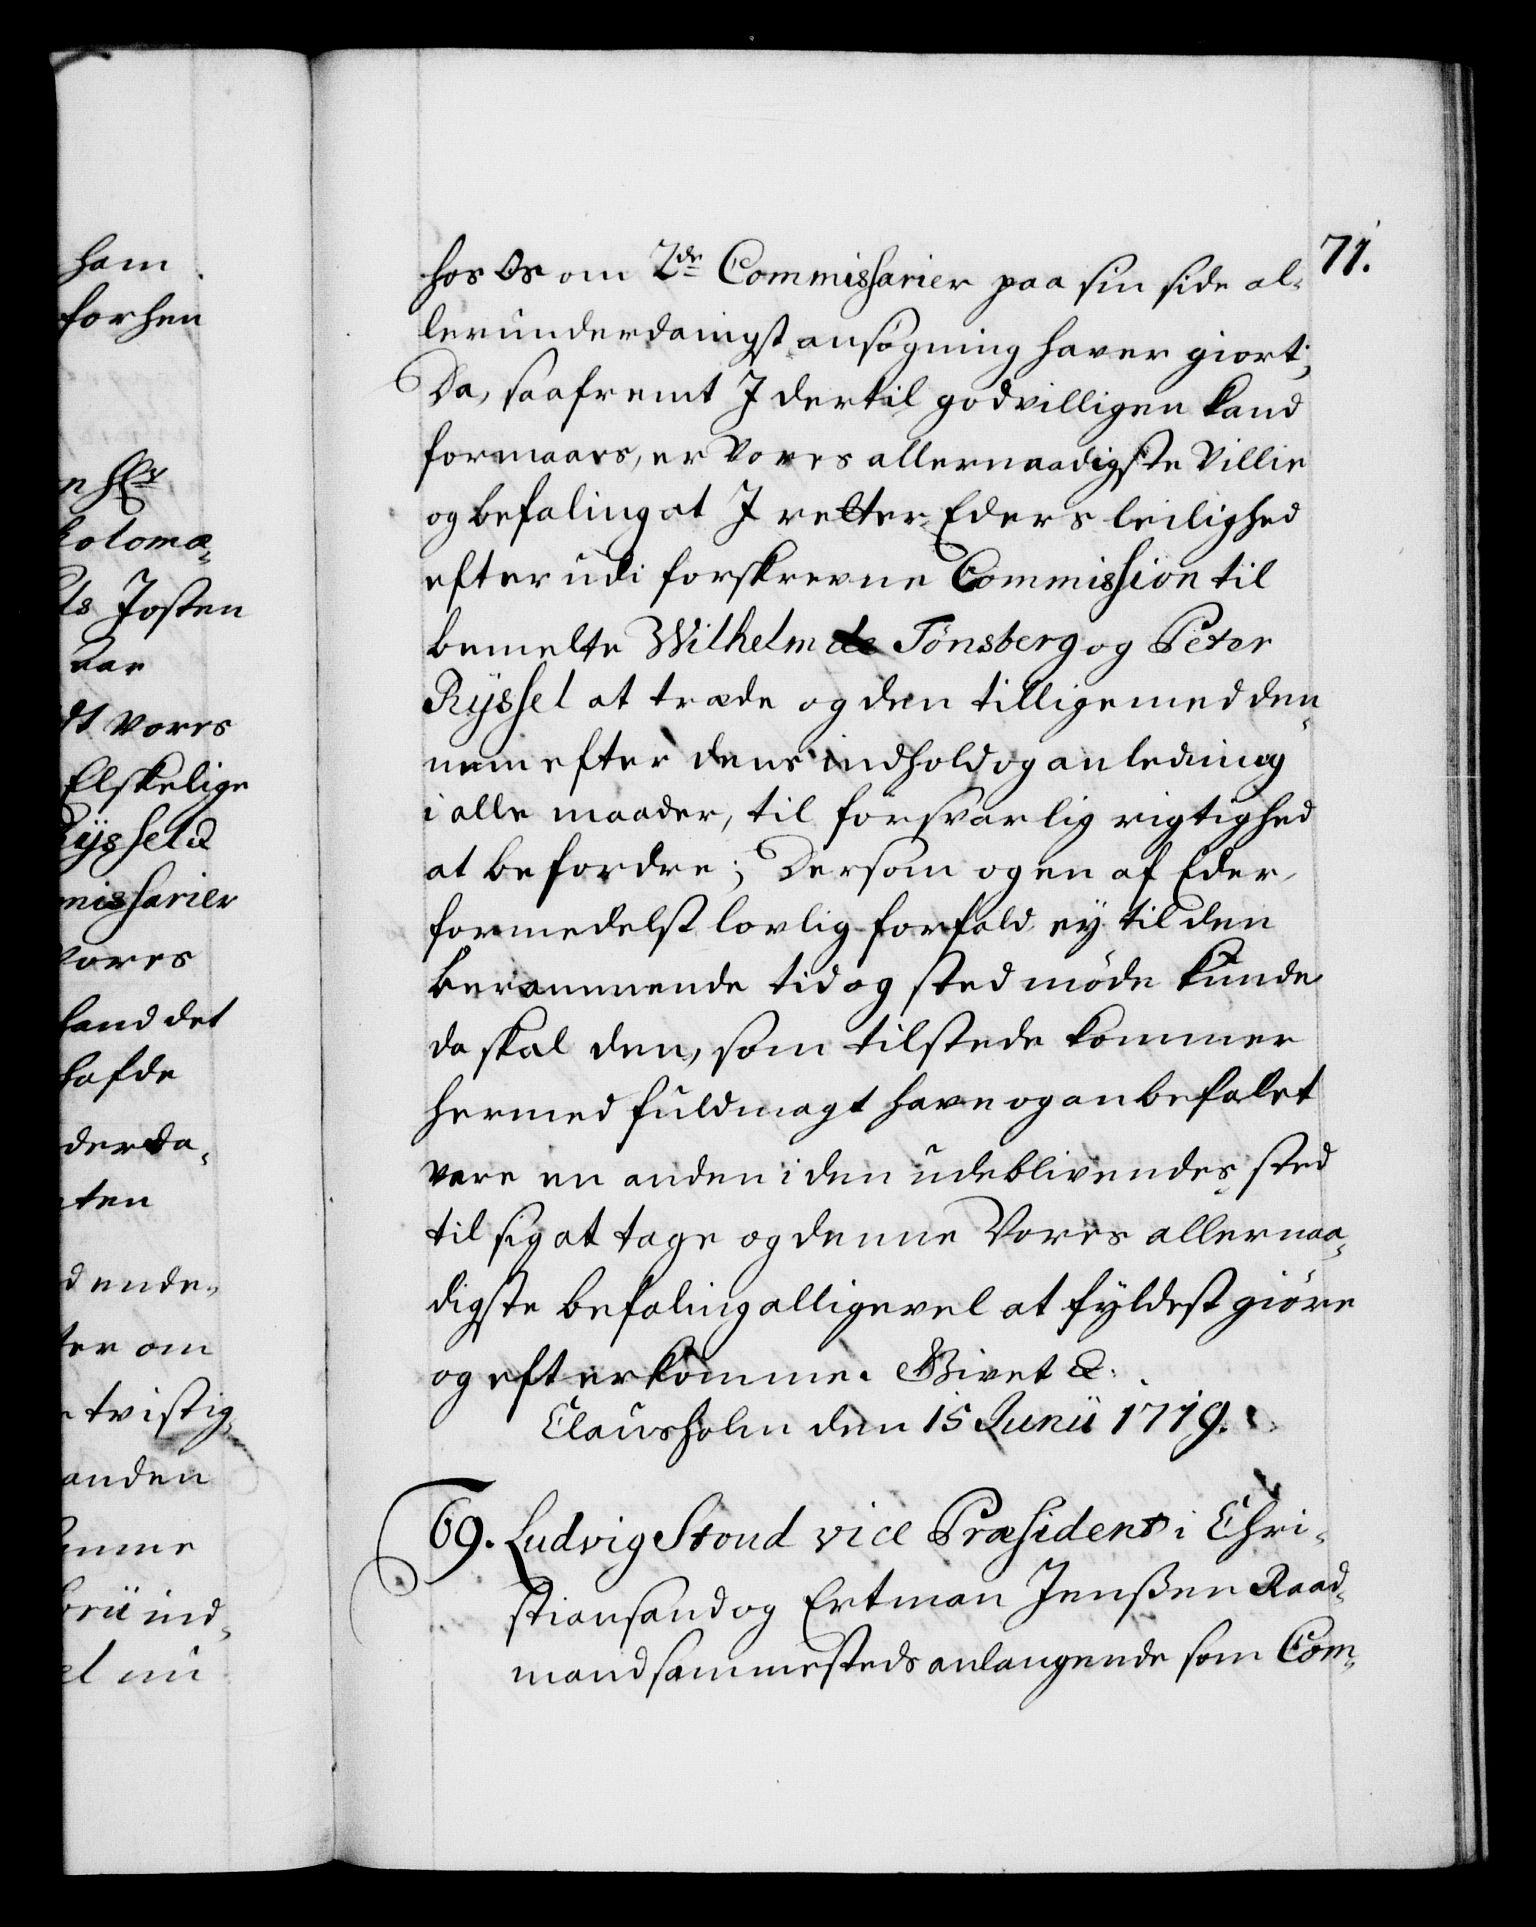 71.
hos Os om 2de Commissarier paa sin side al-
lerunderdanigst ansøgning haver giort,
Da, saafremt I dertil godvilligen kand
formaaes, er Vores allernaadigste Villie
og befaling at I retter Eders leilighed
efter udi forskrevne Commission til
bemelte Wilhelm de Tönsberg og Peter
Ryssel at træde og den tilligemed den-
nem efter dens indhold og anledning
i alle maader, til forsvarlig rigtighed
at befordre; Dersom og en af Eder,
formedelst lovlig forfald ey til den
berammende tid og sted møde kunde
da skal den, som tilstede kommer
hermed fuldmagt have og anbefalet
være en anden i den udeblivendes sted
til sig at tage og denne Vores allernaa-
digste befaling alligevel at fyldest giøre
og efterkomme. Givet &.
Clausholm den 15 Junii 1719.
69. Ludvig Stoud vice Præsident i Chri-
stiansand og Ertman Jenßen Raad-
mand sammesteds anlangende som Com-
ham
forhen
n Hr
tolomæ-
ls Josten
aar
dt Vores
Elskelige
Ryssel &
missarier
Vores
hand det
hafde
derda-
ten
dende-
ter om
tvistig-
anden
omme
brii ind-
el nu